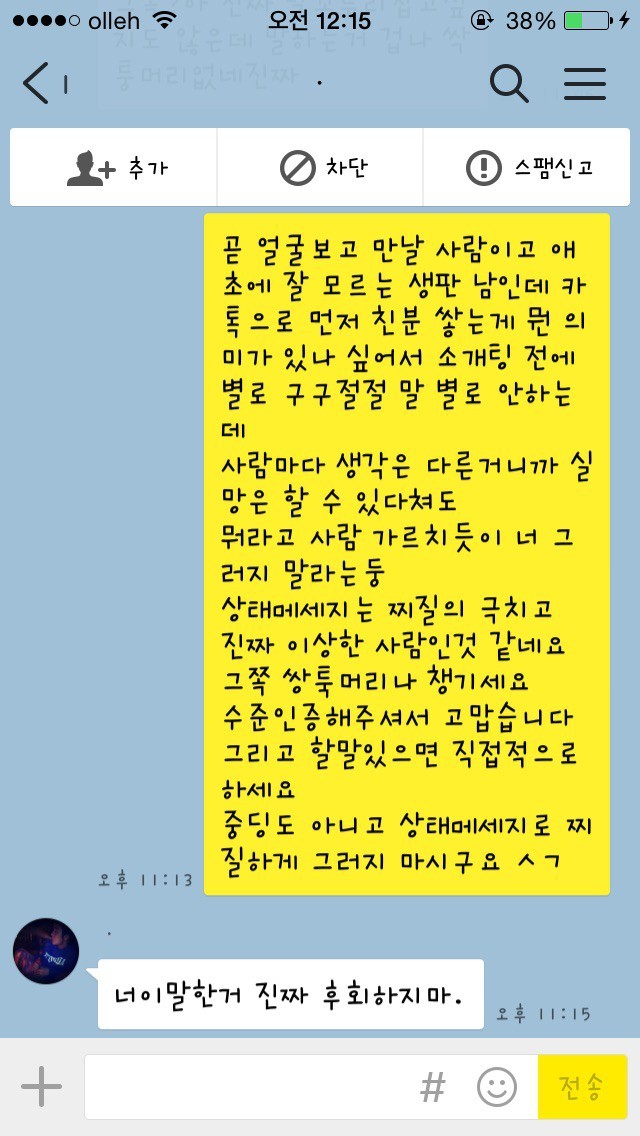 olleh
오전 12:15
38%
지도 않은데 말하는거 겁나 싹
퉁머리없네진짜
1
.
추가
차단
스팸신고
곧 얼굴보고 만날 사람이고 애
초에 잘 모르는 생판 남인데 카
톡으로 먼저 친분 쌓는게 뭔 의
미가 있나 싶어서 소개팅 전에
별로 구구절절 말 별로 안하는
데
사람마다 생각은 다른거니까 실
망은 할 수 있다쳐도
뭐라고 사람 가르치듯이 너 그
러지 말라는둥
상태메세지는 찌질의 극치고
진짜 이상한 사람인것 같네요
그쪽 쌍툭머리나 챙기세요
수준인증해주셔서 고맙습니다
그리고 할말있으면 직접적으로
하세요
중딩도 아니고 상태메세지로 찌
질하게 그러지 마시구요 ㅅㄱ
오후 11:13
.
너이말한거 진짜 후회하지마.
오후 11:15
#
전송